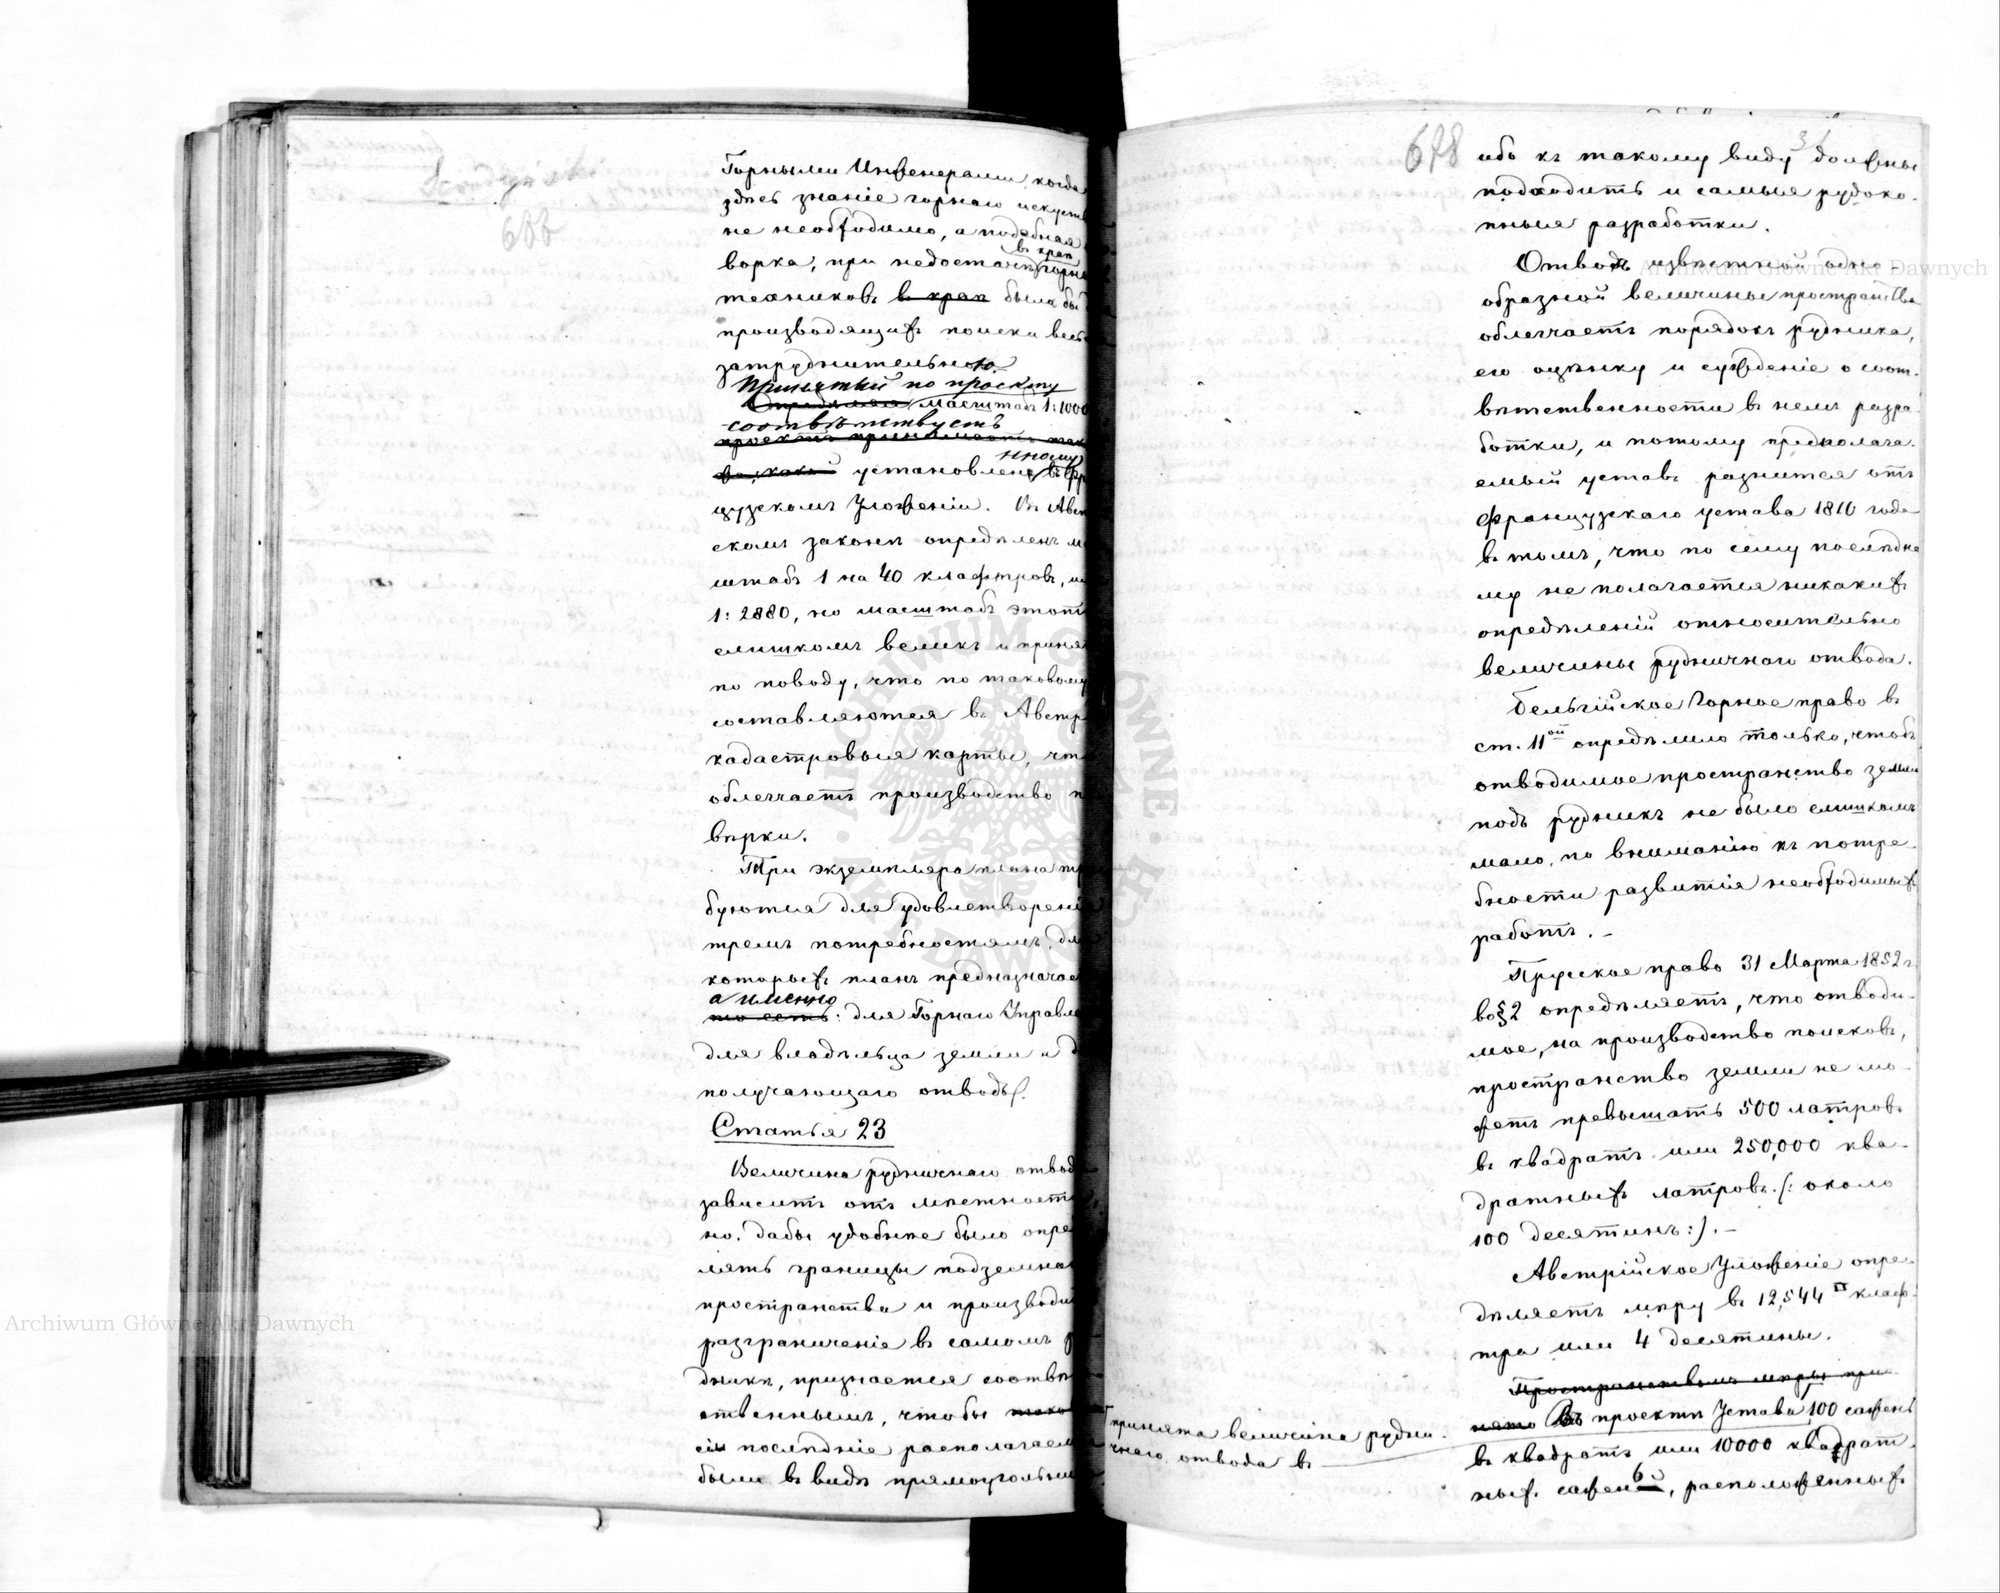 Горными Инженерами, когда
здѣсь знаніе горнаго искуств
не необходимо, а подобная
в крaѣ
ворка, при недостаткѣ горны
техниковъ в краѣ была бы
производящихъ поиски весь
затруднительною.
Принятый по проекту
Опредѣляя масштабъ 1:1000
соотвѣтствуетъ
проектъ принимаетъ
нному
установлено въ Фр
цузскомъ Уложеніи. Въ Авст
скомъ законѣ опредѣленъ м
штабъ 1 на 40 клафтровъ, и
1:2880, но масштабъ этотъ
слишкомъ великъ и приня
по поводу, что по таковому
составляются въ Австр
кадастровыя карты, что
облегчаетъ производство п
вѣрки.
Три экземпляра плана тр
буются для удовлетворені
тремъ потребностямъ, дл
которыхъ планъ предназначае
а именно
то есть: для Горнаго Управле
для владѣльца земли и д
получающаго отводъ.
Статья 23
Величина рудничнаго отвод
зависитъ отъ мѣстност
но. Дабы удобнѣе было опре
лять границы подземна
пространства и производи
разграниченіе въ самомъ р
дникѣ, признается соотвѣ
ственнымъ, чтобы
сіи послѣдніе располагаем
были въ видѣ прямоугольни
628
ибо къ такому виду должны
подходить и самыя рудоко-
пныя разработки.
Отводъ извѣстной одно-
образной величины пространства
облегчаетъ порядокъ рудника,
его оцѣнку и сужденіе о соот-
вѣтственности въ немъ разра-
ботки, и потому предполага-
емый уставъ разнится отъ
Французскаго устава 1810 года
въ томъ, что по сему послѣдне
му не полагается никакихъ
опредѣленій относительно
величины рудничнаго отвода.
Бельгійское Горное право въ
ст. 11ой опредѣлило только, чтобъ
отводимое пространство земли
подъ рудникъ не было слишкомъ
мало, по вниманію къ потре-
бности развитія необходимыхъ
работъ. –
Прусское право 31 Марта 1852 г
въ § 2 опредѣляетъ, что отводи-
мое, на производство поисковъ,
пространство земли не мо-
жетъ превышать 500 латровъ
въ квадратѣ или 250,000 ква-
дратныхъ латровъ. (: около
100 десятинъ :). –
Австрійское Уложеніе опре-
дѣляетъ мѣру въ 12,544 □ клаф-
тра или 4 десятины.
Пространствомъ мѣры при-
нято Въ проектѣ Устава 100 сажень
принята величина рудни-
чнаго отвода въ
въ квадратѣ или 10000 квадрат-
ныхъ саженъ, расположенныхъ